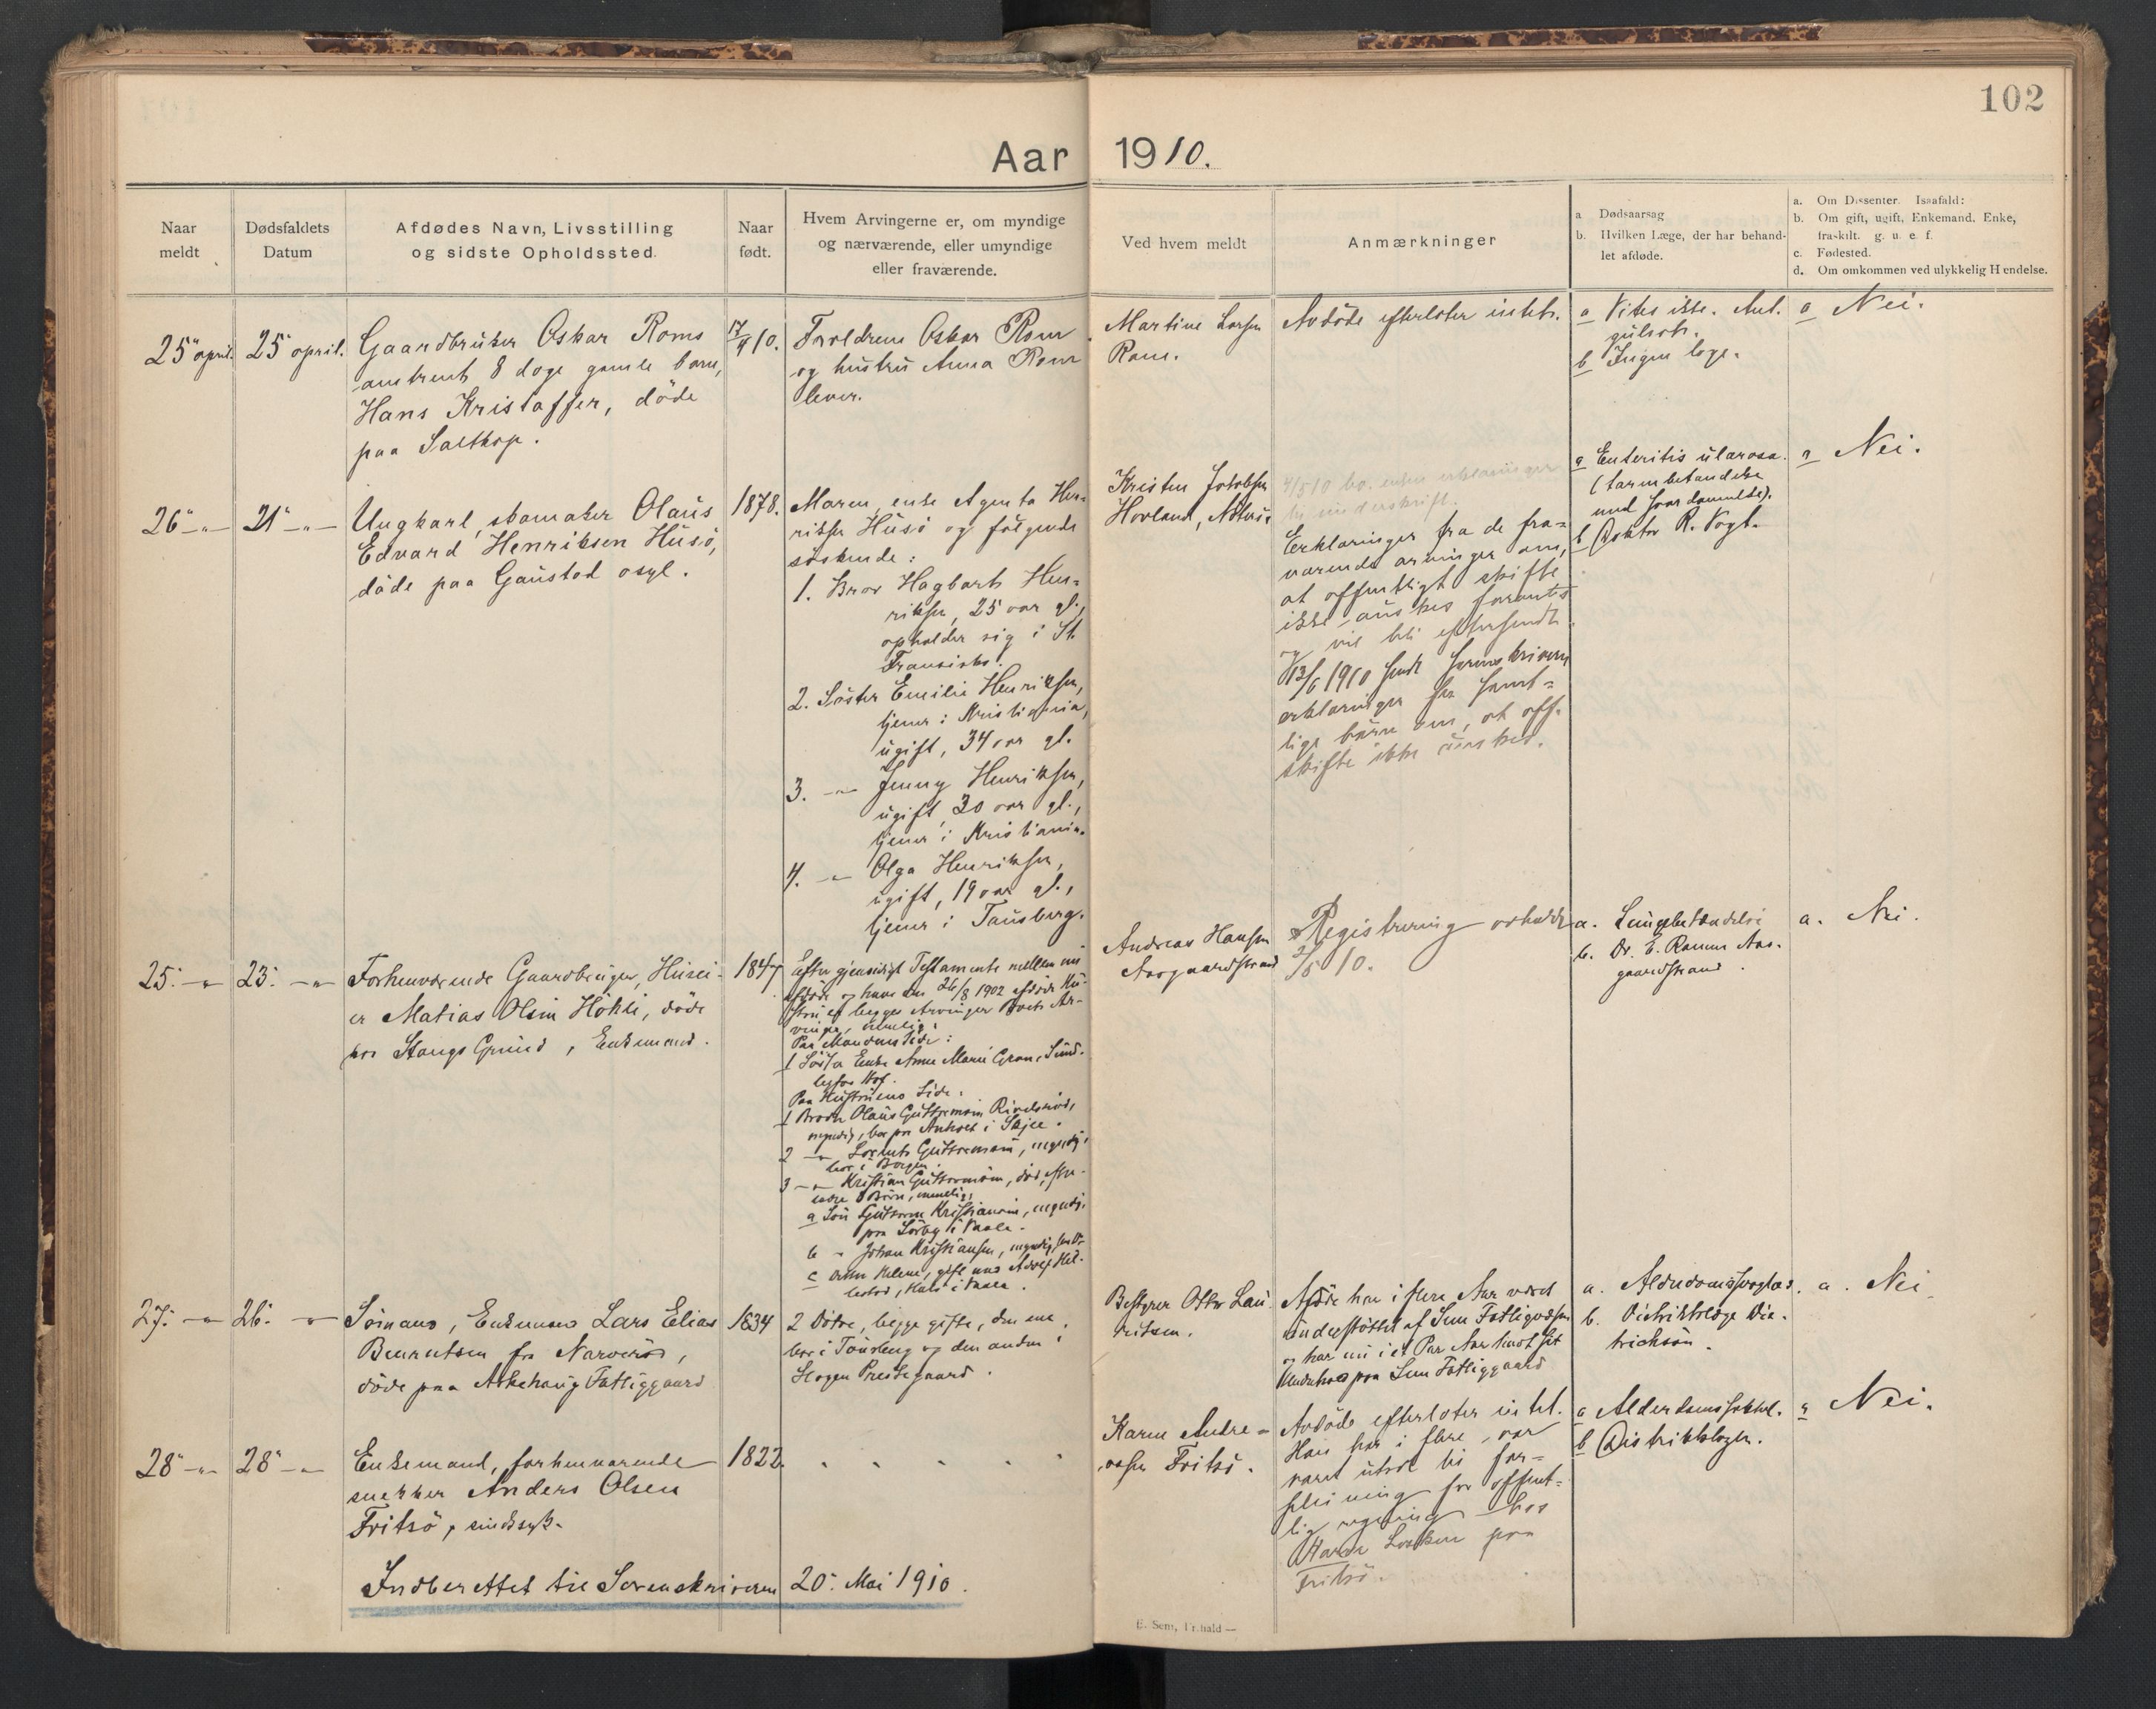 102
Aar 1910.
Naar meldt
Dødsfaldets Datum
Afdødes Navn, Livsstilling og sidste Opholdssted.
Naar født.
Hvem Arvingerne er, om myndige og nærværende, eller umyndige eller fraværende.
Ved hvem meldt
Anmærkninger
a Dødsaarsag
b. Hvilken Læge, der har behandlet afdøde.
a. Om Dissenter. Isaafald:
b. Om gift, ugift, Enkemand, Enke, fraskilt. g. u. e. f.
c. Fødested.
d. Om omkommen ved ulykkelig Hendelse.
25" april.
25" april.
Gaardbruker Oskar Roms
omtrent 8 dage gamle barn,
Hans Kristoffer, døde
paa Saltkop.
17/4 10.
Foreldrene Oskar Rom
og hustru Anna Rom
lever.
Martine Larsen
Rom.
Avdöde efterlater intet.
a Vites ikke. Ant.
gulsot.
b Ingen læge.
a Nei.
26 -"-
21 -"-
Ungkarl, skomaker Olaus
Edvard Henriksen Husö,
döde paa Gaustad asyl.
1878.
Moren, enke Agenta Hen-
riksen Husö og følgende
söskende:
1. Bror Hagbart Hen-
riksen, 25 aar gl.,
opholder sig i St.
Fransisko.
2. Söster Emilie Henriksen,
tjener i Kristiania,
ugift, 34 aar gl.
3. -"- Jenny Henriksen,
ugift, 30 aar gl.,
tjener i Kristiania.
4. -"- Olga Henriksen,
ugift, 19 aar gl.,
tjener i Tønsberg.
Kristen Jakobsen
Hovland, Nøterö
4/5 10 bo. enken erklæringer
til underskrift.
Erklæringer fra de fra-
værende arvinger om,
at offentligt skifte
ikke ønskes foretat
og vil bli eftersendt.
13/6 1910 sendt sorenskriveren
erklæringer fra samt-
lige börn om, at off.
skifte ikke ønskes.
a Enteritis ulcerosa.
(tarmbetændelse
med saardannelse).
b Doktor R. Vogt.
a Nei.
25. -"-
23. -"-
Forhenværende Gaardbruger, Huusei-
er Matias Olsen Hökli, döde
paa Stangs Grund, Enkemand.
1847
Efter gjensidigt Testamente mellem nu
afdöde og hans den 26/8 1902 afdöde Hu-
stru er begges Arvinger Boets Ar-
vinger, nemlig:
Paa Mandens Side:
1 Søster Enke Anne Marie Gran, Sund-
Hof.
Paa Hustruens Side:
1 Broder Olaus Guttormsen
myndig, bor paa i Skjee.
2 -"- Guttormsen, myndig,
bor i Borgen.
3 -"- Kristian Guttormsen, död, efter-
lader 3 Börn, nemlig:
a Sön Guttorm Kristiansen, myndig,
paa Sörby i Vaale.
b " Johan Kristiansen, myndig,
c Datter Helene, gift med Adolf Hel-
i Vaale.
Andreas Hansen
Aasgaardstrand
Registrering avholdt
2/5 10.
a. Lungebetændelse
b. Dr. E. Aas-
gaardstrand.
a. Nei.
27. -"-
26. -"-
Sömand, Enkemand Lars Elias
Berentsen fra Narverød,
döde paa Askehaug Fattiggaard
1834
2 Dötre, begge gifte, den ene
bor i Tönsberg og den anden i
Hogen Prestegaard.
Bestyrer Otto Lau-
ritsen.
Afdöde har i flere Aar været
understöttet af Sem Fattigvæsen
og har nu i et Par Aar havt sit
Underhold paa Sem Fattiggaard
a. Alderdomssvaghed.
b. Distriktslæge Die-
trichson.
a. Nei.
28" -"-
28" -"-
Enkemand, forhenværende
snekker Anders Olsen
Fritsö, sindssyk.
1822.
Karen Andre-
asen Fritsö.
Avdöde efterlater intet.
Han har i flere aar
været utsat til for-
pleining for offent-
lig regning hos
Karen paa
Fritsö.
a Alderdoms
b Distriktslægen.
a Nei.
Indberettet til Sorenskriveren 20. Mai 1910.
E. Sem, Fr.hald —